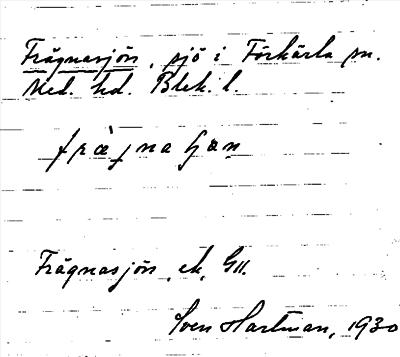 Frägnasjön, sjö i Förkärla sn.
Med. hd. Blek. l.
Frägnasjön, ek, G11.
Sven Hartman, 1930